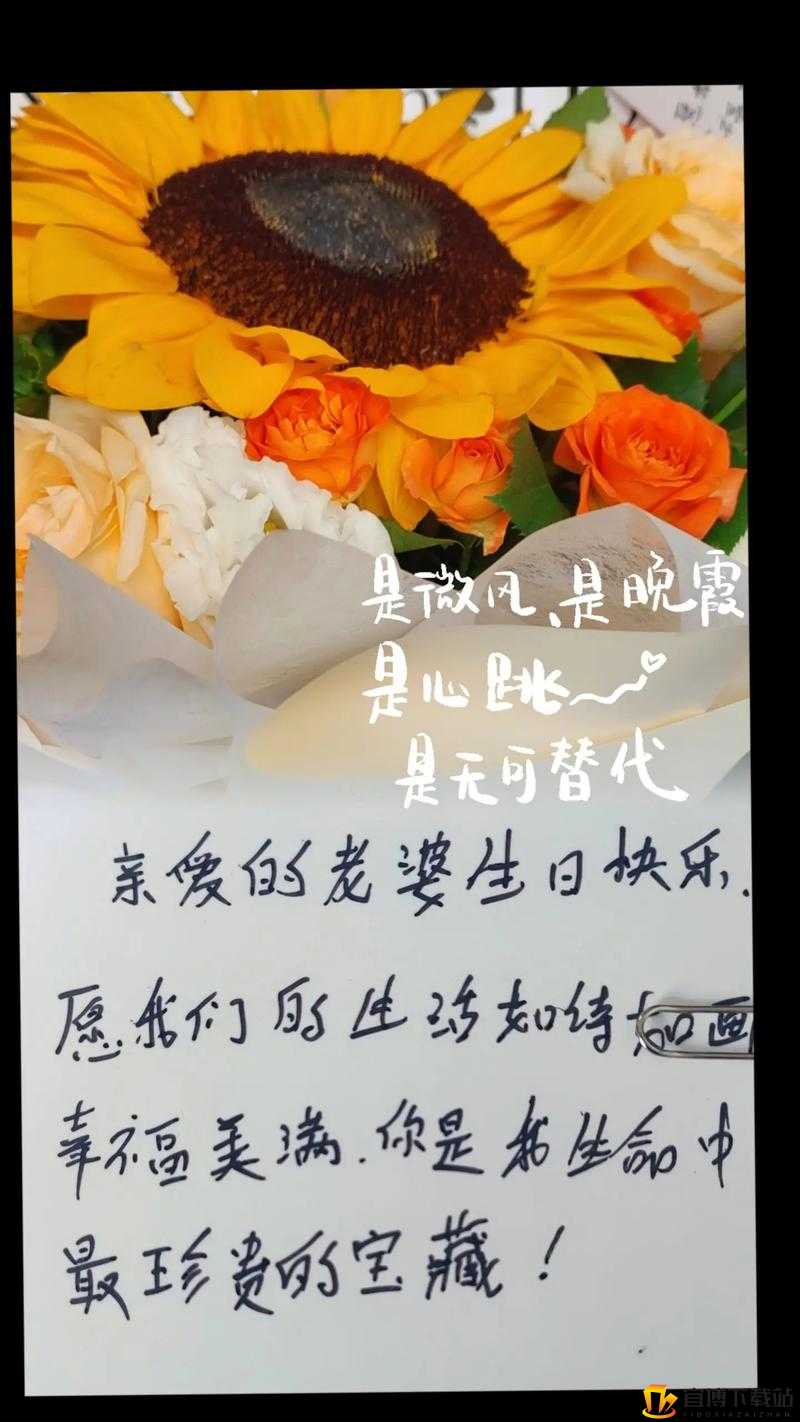 是微风、是晚霞
是心跳
是无可替代
亲爱的老婆生日快乐.
愿我们的生活如诗如画
幸福美满.你是我生命中
最珍贵的宝藏！
宜博下载站